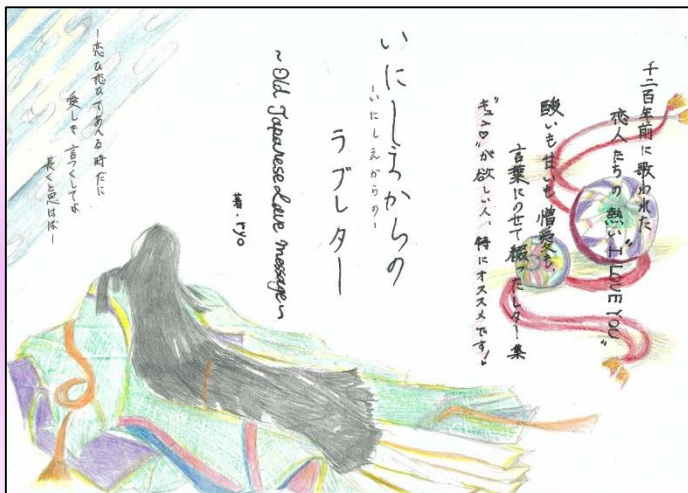 千二百年前に歌われた
恋人たちの熱い"I LOVE YOU"
酸いも甘いも憎愛も、
言葉にのせて綴ったレター集
"キュン♡"が欲しい人、特にオススメです!
いにしゑからの
-いにしえからの-
ラブレター
~Old Japanese Love message~
著・ryo
-恋ひ恋ひてあへる時だに
愛しき言つくしてよ
長くと思はば-